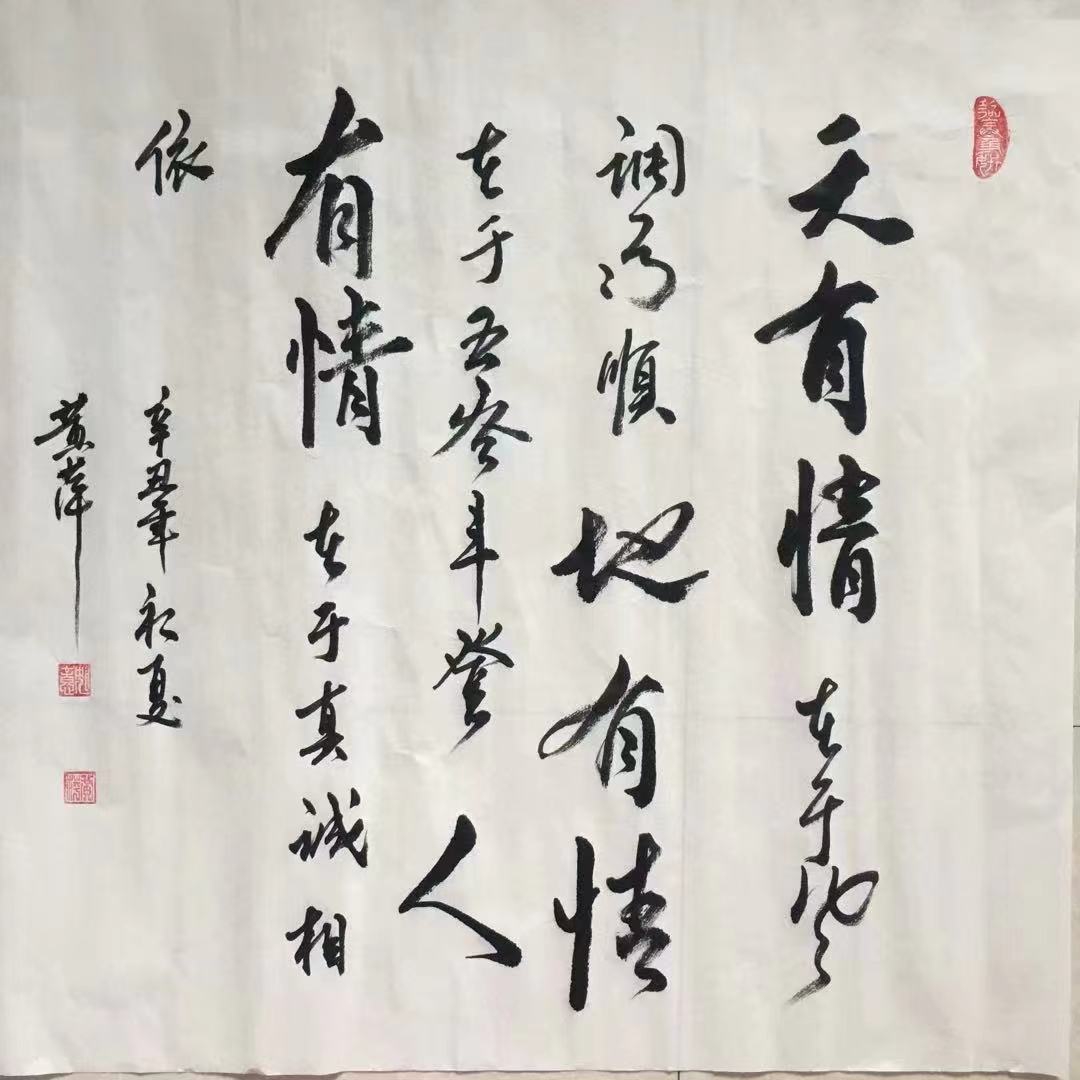 天有情在于風
調雨順地有情
在于五谷丰登人
有情在于真誠相
依
辛丑年初夏
黄萍